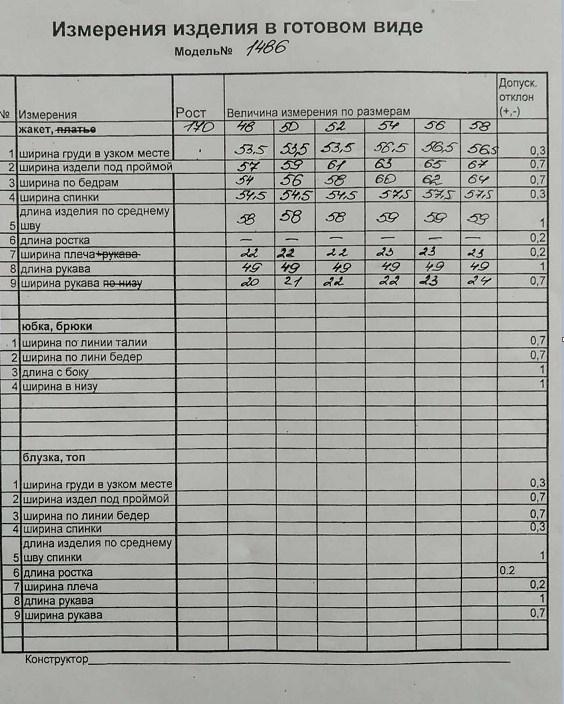 Измерения изделия в готовом виде
Модель№ 1486
№ Измерения Рост Величина измерения по размерам Допуск. отклон (+,-)
жакет, платье 170 48 50 52 54 56 58
1 ширина груди в узком месте 53,5 53,5 53,5 56,5 56,5 56,5 0,3
2 ширина издели под проймой 57 59 61 63 65 67 0,7
3 ширина по бедрам 54 56 58 60 62 64 0,7
4 ширина спинки 54,5 54,5 54,5 57,5 57,5 57,5 0,3
длина изделия по среднему
5 шву 58 58 58 59 59 59 1
6 длина ростка — — — — — — 0,2
7 ширина плеча+рукава 22 22 22 23 23 23 0,2
8 длина рукава 49 49 49 49 49 49 1
9 ширина рукава по низу 20 21 22 22 23 24 0,7
юбка, брюки
1 ширина по линии талии 0,7
2 ширина по лини бедер 0,7
3 длина с боку 1
4 ширина в низу 1
блузка, топ
1 ширина груди в узком месте 0,3
2 ширина издел под проймой 0,7
3 ширина по линии бедер 0,7
4 ширина спинки 0,3
длина изделия по среднему
5 шву спинки 1
6 длина ростка 0.2
7 ширина плеча 0,2
8 длина рукава 1
9 ширина рукава 0,7
Конструктор